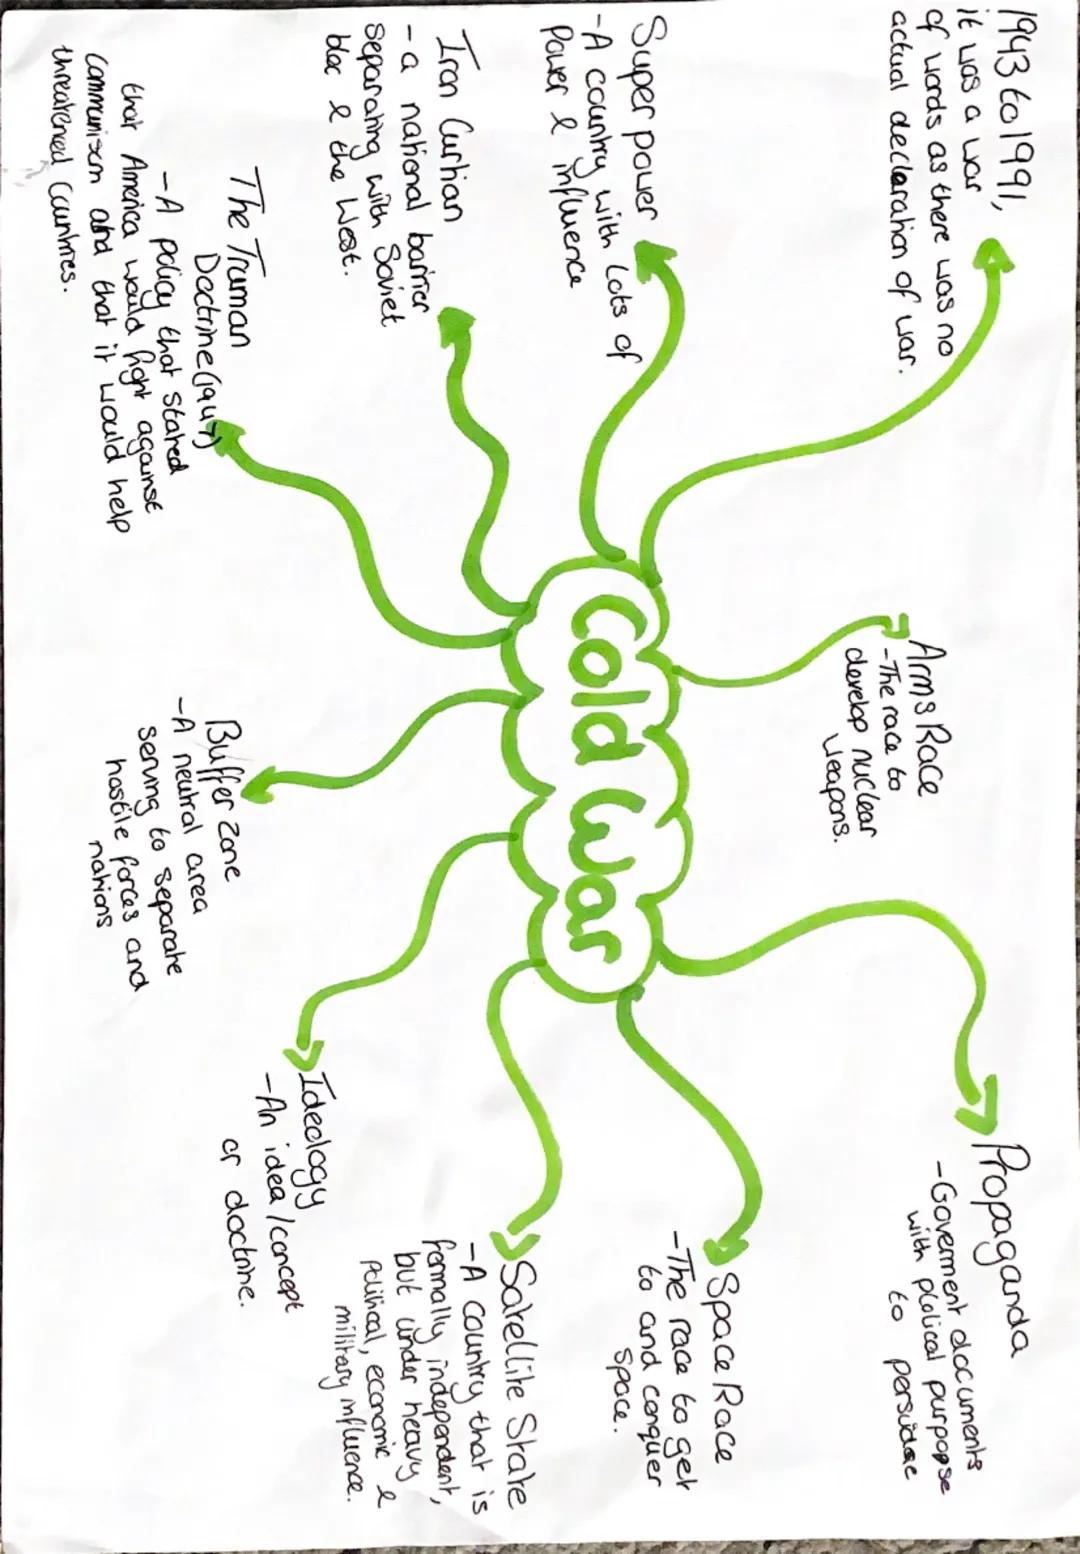 1943 to 1991,
it was a war
of words as there was no
actual declaration of war.
Arms Race
-The race to
develop nuclear
weapons.
Propaganda
-Goverment documents
with plolical purpopse
to persudae
Super power
-A country with lots of
Power & influence
Cold War
Space Race
-The race to get
to and conquer
space.
Iron Curtian
- a national barrier
separating with Soviet
bloc & the West.
Satellite State
-A country that is
formally independent,
but under heavy
political, economic &
military influence.
The Truman
Doctrine (1947)
-A policy that stated
that America would fight against
communism and that it would help
threatened Countries.
Buffer Zone
-A neutral area
serving to separate
hostile forces and
nations
Ideology
-An idea / concept
or doctrine.